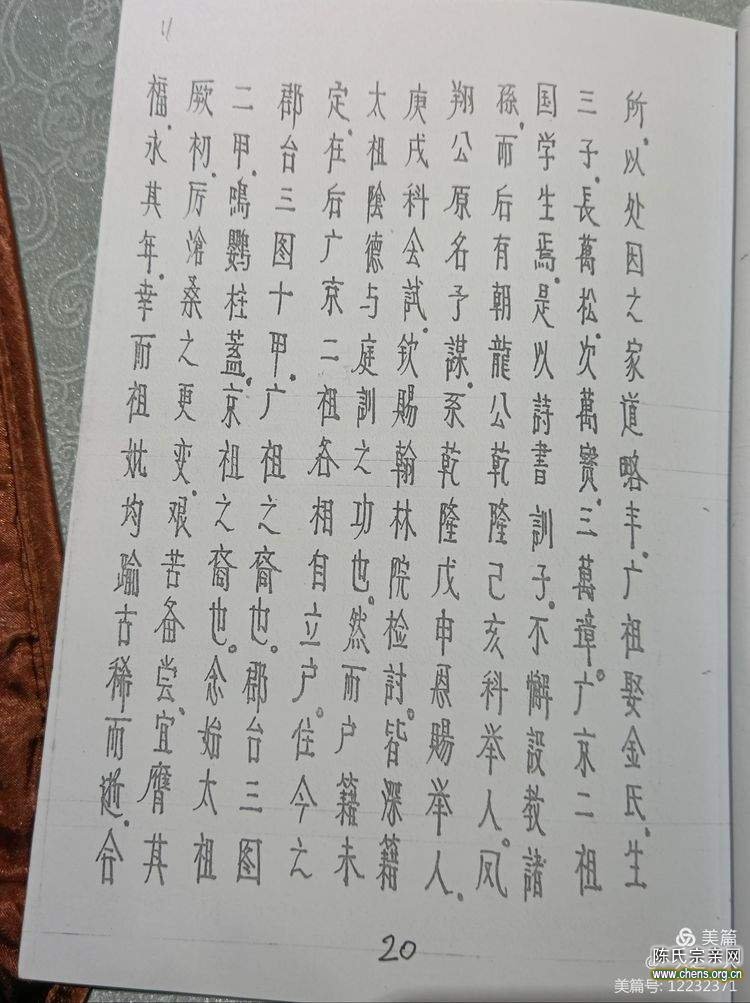 11
所,以处因之家道略丰。广祖娶金氏,生
三子,長萬松,次萬寳,三萬璋。广京二祖
国学生焉,是以詩書訓子。不懈設教諸
孫,而后有朝龍公乾隆己亥科举人。凤
翔公原名予謀,系乾隆戊申恩賜举人、
庚戌科会試,欽賜翰林院检討。皆深籍
太祖陰德与庭訓之功也。然而户籍未
定,在后广京二祖各相自立户。住今之
郡台三图十甲,广祖之裔也。郡台三图
二甲,鳴鸚柱蓋,京祖之裔也。念始太祖
厥初,历滄桑之更变,艰苦备尝,宜膺其
福,永其年,幸而祖妣均踰古稀而逝,合
20
美篇
陈氏宗亲网
www.chens.org.cn
美篇号: 12232371